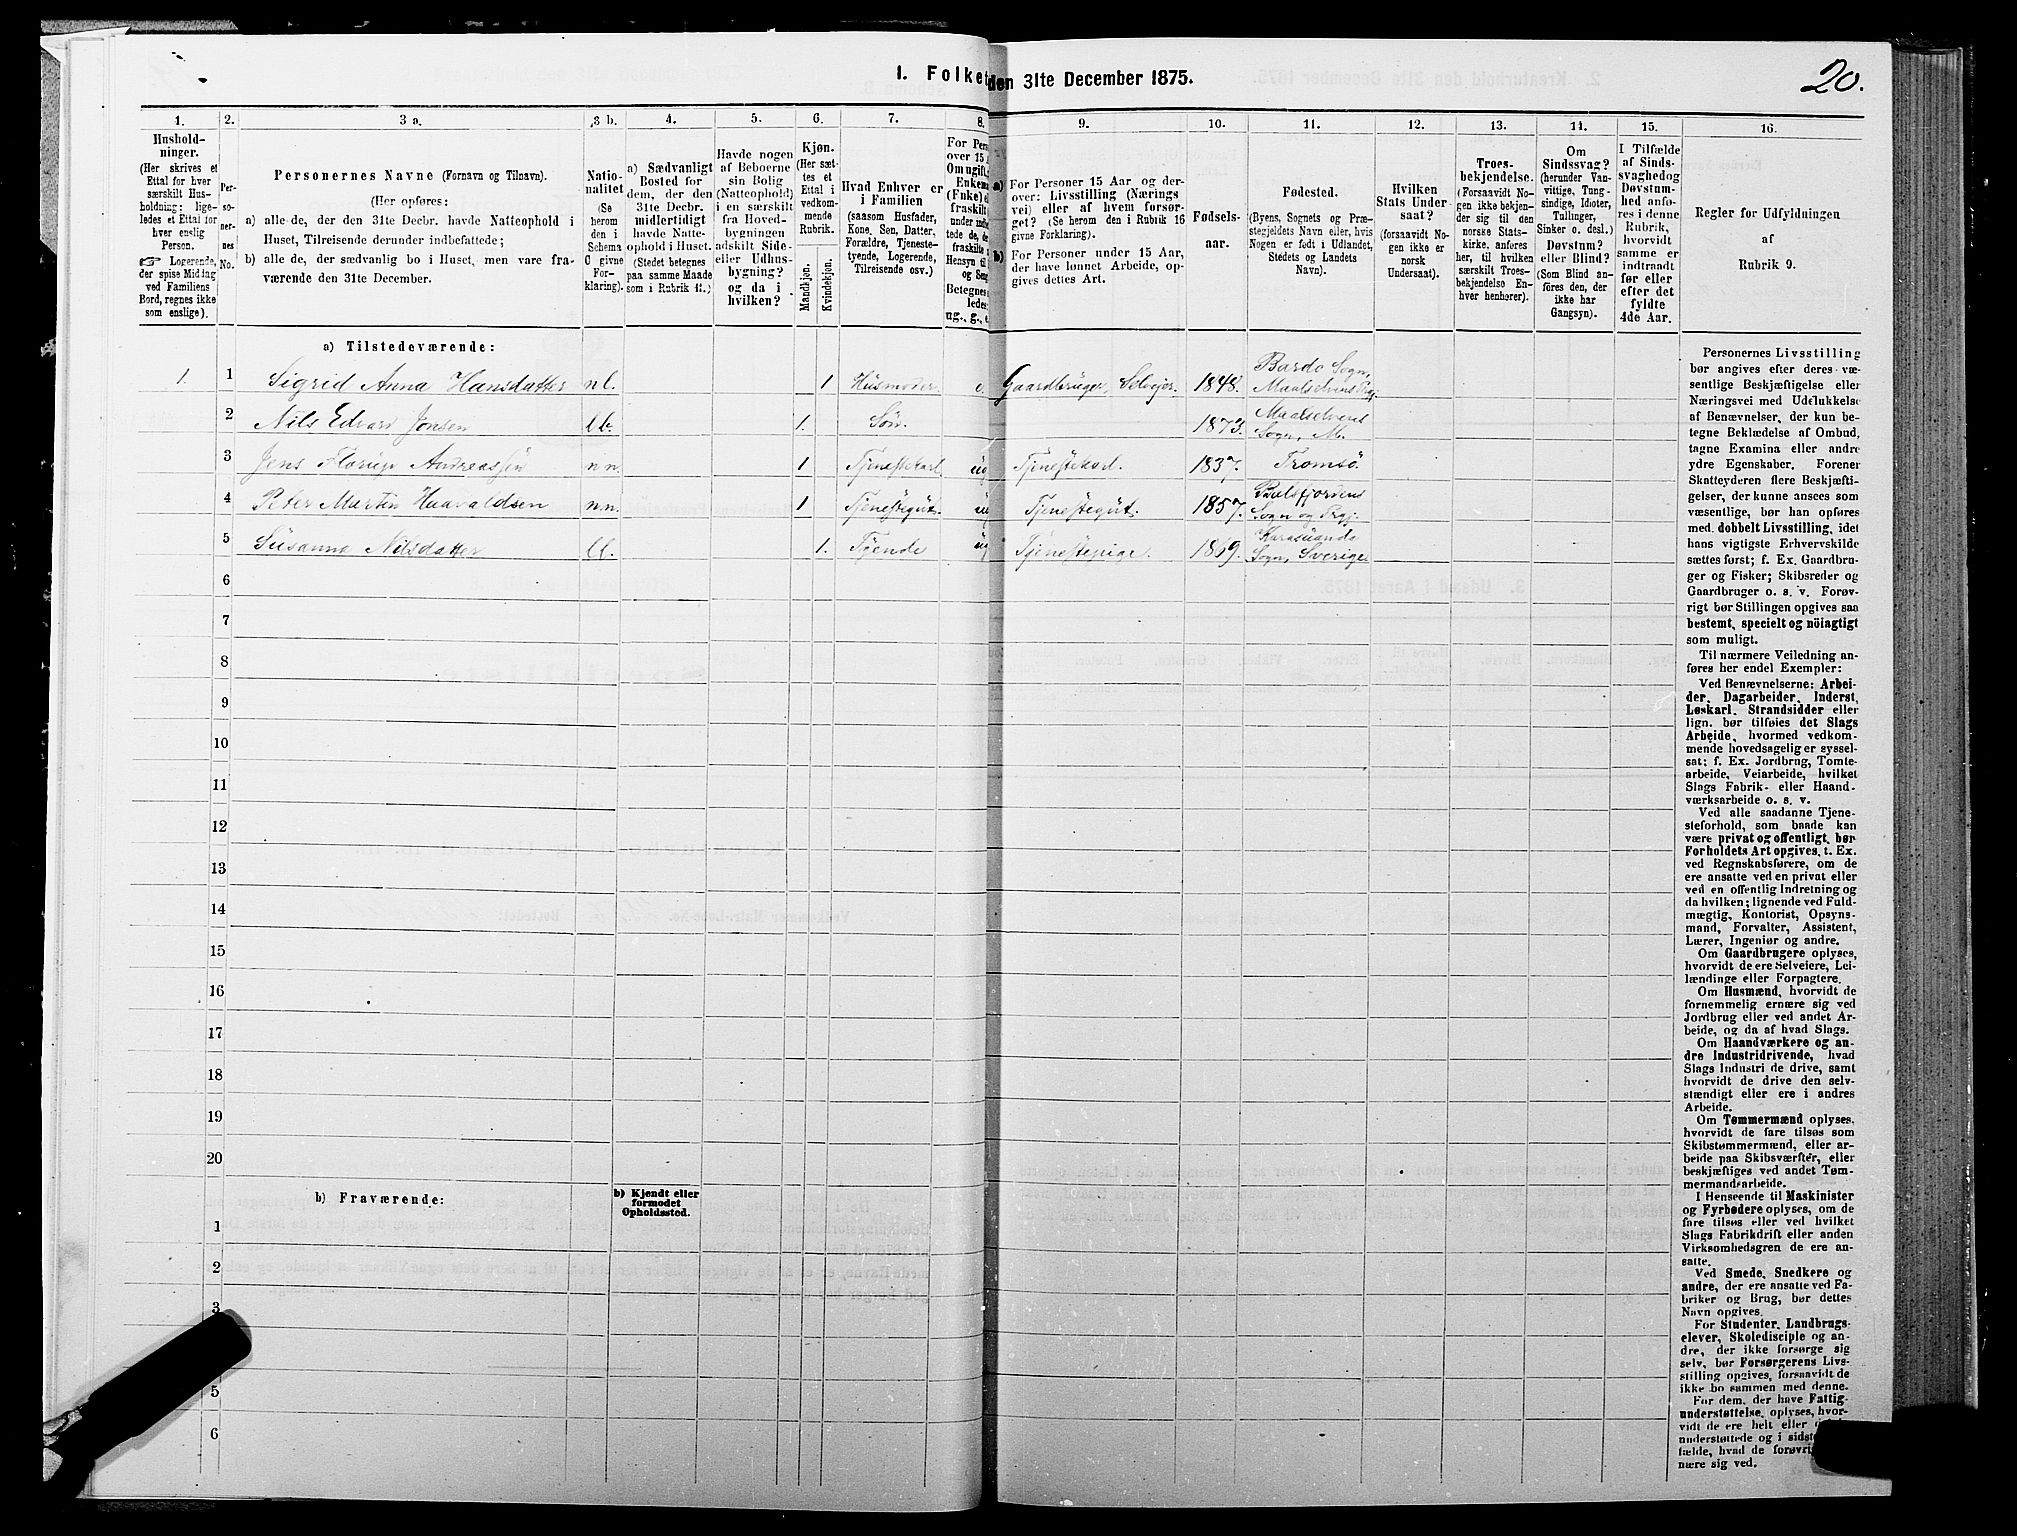 1. Folket den 31te December 1875.
20.
1. 2. 3 a. 3 b. 4. 5. 6. 7. 8. 9. 10. 11. 12. 13. 14. 15. 16.
Hushold-
ninger.
(Her skrives et
Ettal for hver
særskilt Hus-
holdning; lige-
ledes et Ettal for
hver enslig
Person.
☞ Logerende,
der spise Middag
ved Familiens
Bord, regnes ikke
som enslige).
Per-
so-
ner-
nes
No.
Personernes Navne (Fornavn og Tilnavn).
(Her opføres:
a) alle de, der den 31te Decbr. havde Natteophold i
Huset, Tilreisende derunder indbefattede;
b) alle de, der sædvanlig bo i Huset, men vare fra-
værende den 31te December.
Natio-
nalitet
(Se
herom
den i
Schema
C givne
For-
klaring).
a) Sædvanligt
Bosted for
dem, der den
31te Decbr.
midlertidigt
havde Natte-
ophold i Huset.
(Stedet betegnes
paa samme Maade
som i Rubrik 11.)
Havde nogen
af Beboerne
sin Bolig
(Natteophold)
i en særskilt
fra Hoved-
bygningen
adskilt Side-
eller Udhus-
bygning?
og da i
hvilken?
Kjøn.
(Her sæt-
tes et
Ettal i
vedkom-
mende
Rubrik.
Mandkjøn.
Kvindekjøn.
Hvad Enhver er
i Familien
(saasom Husfader,
Kone, Søn, Datter,
Forældre, Tjeneste-
tyende, Logerende,
Tilreisende osv.)
For Pers
over 15 A
Om ugift,
Enkema
(Enke) e
fraskilt
under indfa
tede de, de
fraskilte
Hensyn til
og Seng
Betegnes
ledes:
ug., g., e.
a)
For Personer 15 Aar og der-
over: Livsstilling (Nærings
vei) eller af hvem forsør-
get? (Se herom den i Rubrik 16
givne Forklaring).
b)
For Personer under 15 Aar,
der have lønnet Arbeide, op-
gives dettes Art.
Fødsels-
aar.
Fødested.
(Byens, Sognets og Præ-
stegjeldets Navn eller, hvis
Nogen er født i Udlandet,
Stedets og Landets
Navn).
Hvilken
Stats Under-
saat?
(forsaavidt No-
gen ikke er
norsk
Undersaat).
Troes-
bekjendelse.
(Forsaavidt No-
gen ikke bekjen-
der sig til den
norske Stats-
kirke, anføres
her, til hvilken
særskilt Troes-
bekjendelse En-
hver henhører).
Om
Sindssvag?
(herunder Van-
vittige, Tung-
sindige, Idioter,
Tullinger,
Sinker o. desl.)
Døvstum?
eller Blind?
(Som Blind an-
føres den, der
ikke har
Gangsyn).
I Tilfælde
af Sinds-
svaghed og
Døvstum-
hed anfø-
res i denne
Rubrik,
hvorvidt
samme er
indtraadt
før eller
efter det
fyldte
4de Aar.
Regler for Udfyldningen
af
Rubrik 9.
a) Tilstedeværende:
1. 1 Sigrid Anna Hansdatter nl. 1 Husmoder e. Gaardbruger, Selvejer. 1848. Bardo Sogn, Maalselvens Prgj.
2 Nils Edvard Jonsen lb. 1. Søn. 1873. Maalselvens Sogn, M.
3 Jens Andreassen nn. 1 Tjenestekarl ug Tjenestekarl. 1837. Tromsö.
4 Peter Martin Haavaldsen nn. 1 Tjenestegut. ug Tjenestegut. 1857. Balsfjordens Sogn og Prgj.
5 Susanna Nilsdatter ll. 1. Tyende ug Tjenestepige. 1869. Karasuando Sogn, Sverige.
6
7
8
9
10
11
12
13
14
15
16
17
18
19
20
b) Fraværende:
b) Kjendt eller
formodet
Opholdssted.
1
2
3
5
6
Personernes Livsstilling
bør angives efter deres væ-
sentlige Beskjæftigelse eller
Næringsvei med Udelukkelse
af Benævnelser, der kun be-
tegne Beklædelse af Ombud,
tagne Examina eller andre
ydre Egenskaber. Forener
Skatteyderen flere Beskjæfti-
gelser, der kunne ansees som
væsentlige, bør han opføres
med dobbelt Livsstilling, idet
hans vigtigste Erhvervskilde
sættes først; f. Ex. Gaardbru-
ger og Fisker; Skibsreder og
Gaardbruger o. s. v. Forøv-
rigt bør Stillingen opgives saa
bestemt, specielt og nöiagtigt
som muligt.
Til nærmere Veiledning an-
føres her endel Exempler:
Ved Benævnelserne: Arbei-
der, Dagarbeider, Inderst,
Løskarl, Strandsidder eller
lign. bør tilføies det Slags
Arbeide, hvormed vedkom-
mende hovedsagelig er syssel-
sat; f. Ex. Jordbrug, Tomte-
arbeide, Veiarbeide, hvilket
Slags Fabrik- eller Haand-
værksarbeide o. s. v.
Ved alle saadanne Tjene-
steforhold, som baade kan
være privat og offentligt, bør
Forholdets Art opgives, t. Ex.
ved Regnskabsførere, om de
ere ansatte ved en privat eller
ved en offentlig Indretning og
da hvilken; lignende ved Fuld-
mægtig, Kontorist, Opsyns-
mand, Forvalter, Assistent,
Lærer, Ingeniør og andre.
Om Gaardbrugere oplyses,
hvorvidt de ere Selveiere, Lei-
lændinge eller Forpagtere.
Om Husmænd, hvorvidt de
fornemmelig ernære sig ved
Jordbrug eller ved andet Ar-
beide, og da af hvad Slags.
Om Haandværkere og an-
dre Industridrivende, hvad
Slags Industri de drive, samt
hvorvidt de drive den selv-
stændigt eller ere i andres
Arbeide.
Om Tømmermænd oplyses,
hvorvidt de fare tilsøs som
Skibstømmermænd, eller ar-
beide paa Skibsværfter, eller
beskjæftiges ved andet Tøm-
mermandsarbeide.
I Henseende til Maskinister
og Fyrbødere oplyses, om de
fare tilsøs eller ved hvilket
Slags Fabrikdrift eller anden
Virksomhedsgren de ere an-
satte.
Ved Smede, Snedkere og
andre, der ere ansatte ved Fa-
briker og Brug, bør dettes
Navn opgives.
For Studenter, Landbrugs-
elever, Skoledisciple og an-
dre, der ikke forsørge sig
selv, bør Forsørgerens Livs-
stilling opgives, forsaavidt de
ikke bo sammen med denne.
For dem, der have Fattig-
understøttelse, oplyses, hvor-
vidt de ere helt eller
understøttede og i sidst
fælde, hvad de forøvri
nære sig ved.